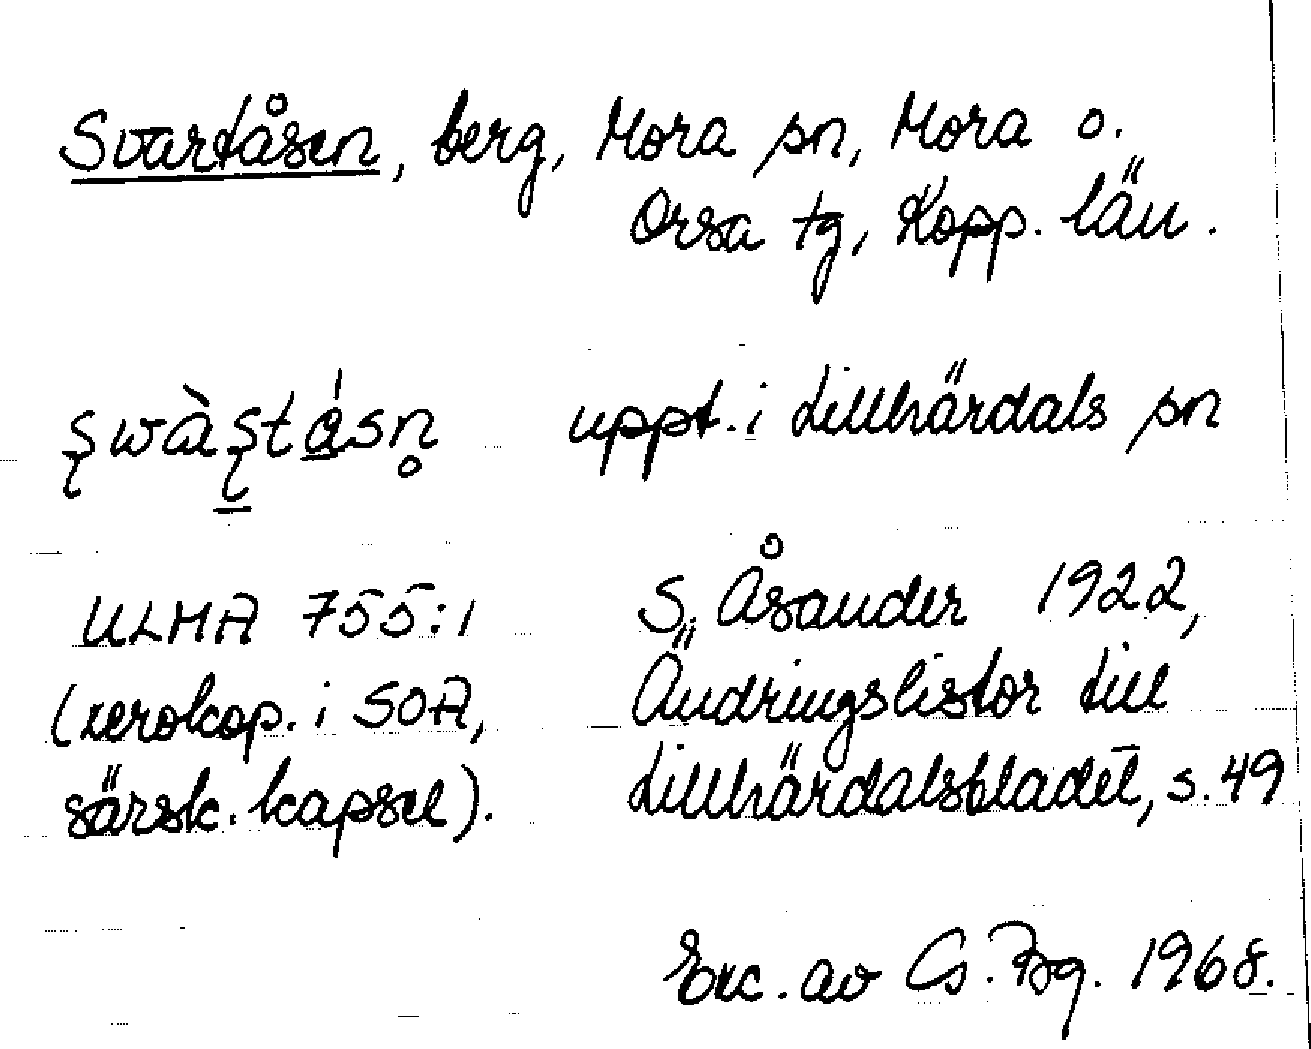 Svartåsen, berg, Mora sn, Mora o.
Orsa tg, Kopp. län.
uppt. i Lillhärdals sn
ULMA 755:1
(xerokop. i SOA,
särsk. kapsel).
S. Åsander 1922,
Ändringslistor till
Lillhärdalsbladet, s. 49
Exc. av Cs. Fbg. 1968.